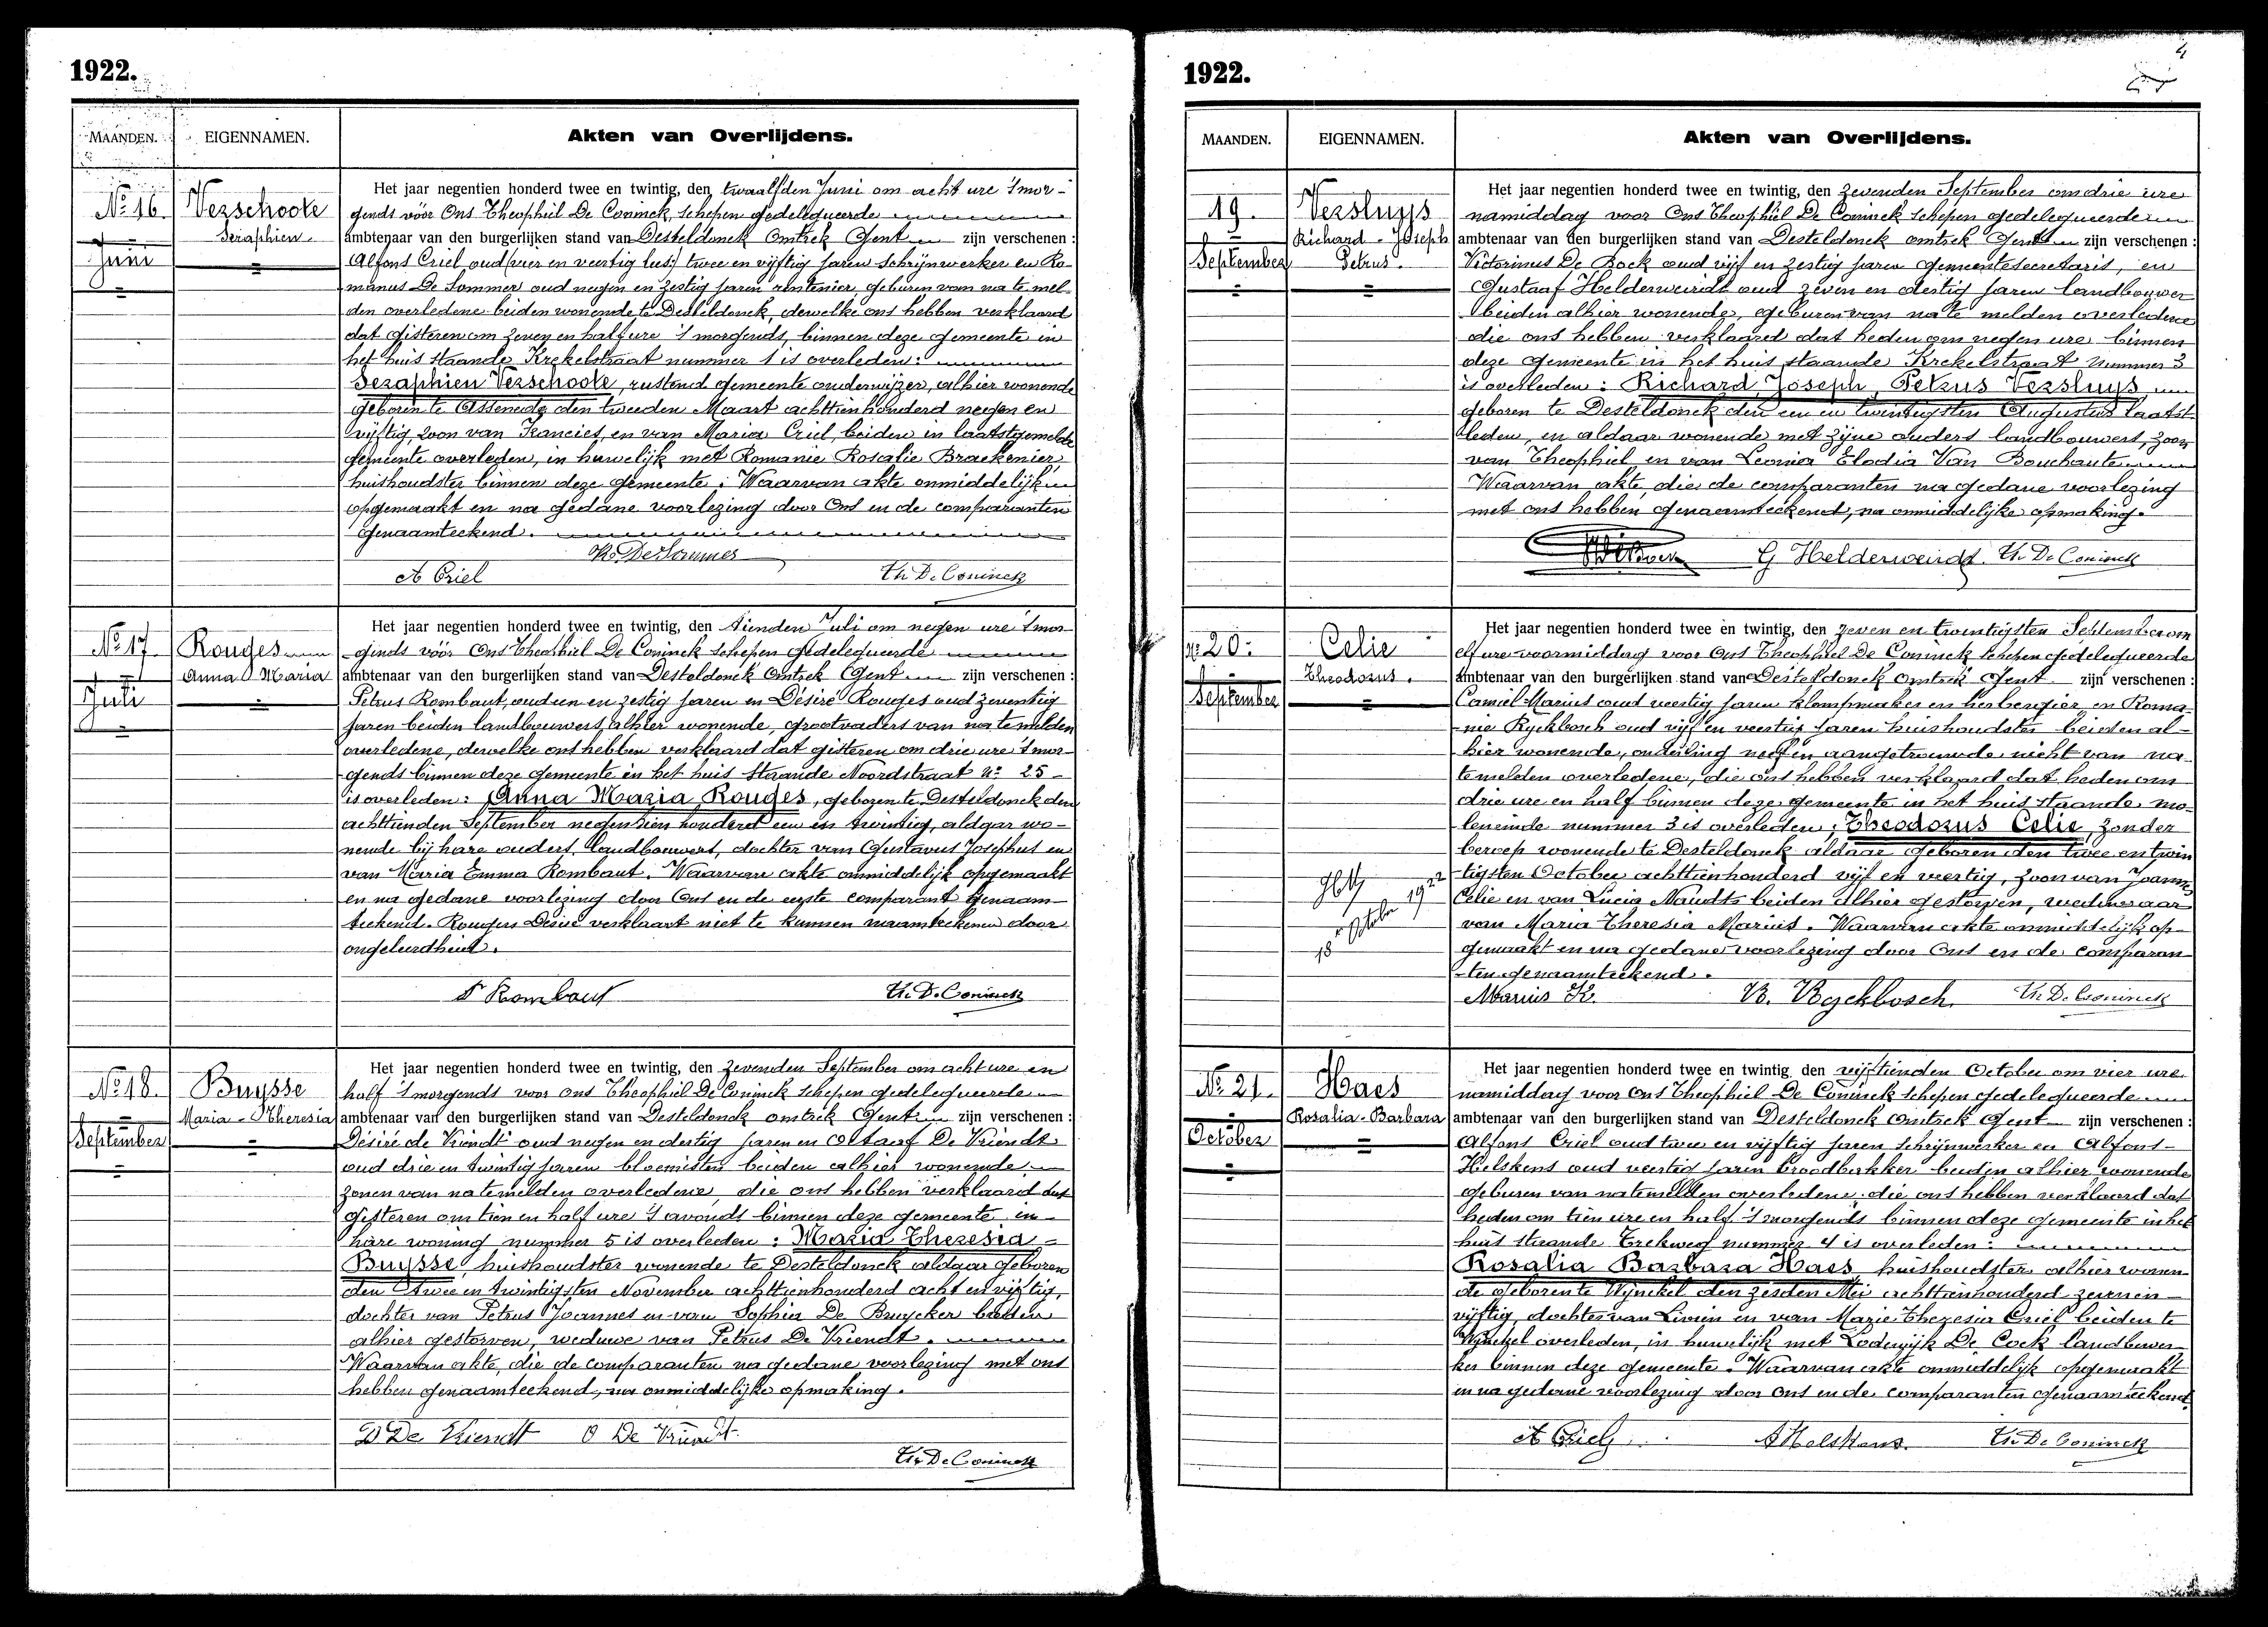 1922.
MAANDEN.
EIGENNAMEN.
Akten van Overlijdens.
No 16.
Juni
Verschoote
Seraphien.
Het jaar negentien honderd twee en twintig, den twaalfden Juni om acht ure 's mor-
gends vóór Ons Theophiel De Coninck, schepen gedelegueerde
ambtenaar van den burgerlijken stand van Desteldonck Omtrek Gent zijn verschenen :
Alfons Criel oud (vier en veertig lees:) twee en vijftig jaren schrijnwerker en Ro-
manus De Sommer oud negen en zestig jaren rentenier, geburen van na te mel-
den overledene beiden wonende te Desteldonck, dewelke ons hebben verklaard
dat gisteren om zeven en half ure 's morgends, binnen deze gemeente in
het huis staande Krekelstraat nummer 1 is overleden :
Seraphien Verschoote, rustend gemeente onderwijzer, alhier wonende
geboren te Assenede den tweeden Maart achttienhonderd negen en
vijftig, zoon van Francies, en van Maria Criel, beiden in laatstgemelde
gemeente overleden, in huwelijk met Romanie Rosalie Braekenier,
huishoudster binnen deze gemeente. Waarvan akte onmiddelijk
opgemaakt en na gedane voorlezing door Ons en de comparanten
genaamteekend.
R. De Sommer
A Criel
Th. De Coninck
No 17.
Juli
Rouges
Anna Maria
Het jaar negentien honderd twee en twintig, den tienden Juli om negen ure 's mor-
gends vóór Ons Theophiel De Coninck schepen gedelegueerde
ambtenaar van den burgerlijken stand van Desteldonck Omtrek Gent zijn verschenen :
Petrus Rombaut, oud een en zestig jaren en Désiré Rouges oud zeventig
jaren beiden landbouwers, alhier wonende, grootvaders van na te melden
overledene, dewelke ons hebben verklaard dat gisteren om drie ure 's mor-
gends binnen deze gemeente in het huis staande Noordstraat No 25
is overleden : Anna Maria Rouges, geboren te Desteldonck den
achttienden September negentien honderd een en twintig, aldaar wo-
nende bij hare ouders, landbouwers, dochter van Gustavus Josephus en
van Maria Emma Rombaut. Waarvan akte onmiddelijk opgemaakt
en na gedane voorlezing door Ons en de eerste comparant genaam-
teekend. Rouges Désiré verklaart niet te kunnen naamteekenen door
ongeleerdheid.
P Rombaut
Th. De Coninck
No 18.
September
Buysse
Maria - Theresia
Het jaar negentien honderd twee en twintig, den zevenden September om acht ure en
half 's morgends voor ons Theophiel De Coninck schepen gedelegueerde
ambtenaar van den burgerlijken stand van Desteldonck omtrek Gent zijn verschenen :
Désiré de Vriendt oud negen en dertig jaren en Octaaf De Vriendt
oud drie en twintig jaren bloemisten beiden alhier wonende
zonen van natemelden overledene, die ons hebben verklaard dat
gisteren om tien en half ure 's avonds binnen deze gemeente in
hare woning nummer 5 is overleden : Maria Theresia
Buysse, huishoudster wonende te Desteldonck aldaar geboren
den twee en twintigsten November achttienhonderd acht en vijftig,
dochter van Petrus Joannes en van Sophia De Bruycker beiden
alhier gestorven, weduwe van Petrus De Vriendt.
Waarvan akte, die de comparanten na gedane voorlezing met ons
hebben genaamteekend, na onmiddelijke opmaking.
D De Vriendt O De Vriendt
Th. De Coninck
4
1922.
MAANDEN.
EIGENNAMEN.
Akten van Overlijdens.
19.
September
Versluys
Richard - Joseph
Petrus.
Het jaar negentien honderd twee en twintig, den zevenden September om drie ure
namiddag voor Ons Theophiel De Coninck schepen gedelegueerde
ambtenaar van den burgerlijken stand van Desteldonck omtrek Gent zijn verschenen :
Victorinus De Bock oud vijf en zestig jaren gemeentesecretaris, en
Gustaaf Helderweirdt oud zeven en dertig jaren landbouwer
beiden alhier wonende, geburen van na te melden overledene
die ons hebben verklaard dat heden om negen ure binnen
deze gemeente in het huis staande Krekelstraat nummer 3
is overleden : Richard Joseph Petrus Versluys
geboren te Desteldonck den een en twintigsten Augustus laatst-
leden, en aldaar wonende met zijne ouders landbouwers, zoon
van Theophiel en van Leonia Elodia Van Bouchaute
Waarvan akte, die de comparanten na gedane voorlezing
met ons hebben genaamteekend, na onmiddelijke opmaking.
G Helderweirdt Th. De Coninck
No 20.
September
Celie
Theodorus.
18 October 1922
Het jaar negentien honderd twee en twintig, den zeven en twintigsten September om
elf ure voormiddag voor Ons Theophiel De Coninck schepen gedelegueerde
ambtenaar van den burgerlijken stand van Desteldonck Omtrek Gent zijn verschenen :
Camiel Marius oud veertig jaren klompmaker en herbergier en Roma-
nie Ryckbosch oud vijf en veertig jaren huishoudster beiden al-
hier wonende, onderling neef en aangetrouwde nicht van na-
temelden overledene, die ons hebben verklaard dat heden om
drie ure en half binnen deze gemeente in het huis staande mo-
leneinde nummer 3 is overleden : Theodorus Celie, zonder
beroep wonende te Desteldonck aldaar geboren den twee en twin-
tigsten October achttienhonderd vijf en veertig, zoon van Joannes
Celie en van Lucia Naudts beiden alhier gestorven, weduwaar
van Maria Theresia Marius. Waarvan akte onmiddelijk op-
gemaakt en na gedane voorlezing door Ons en de comparan-
ten genaamteekend.
Marius K. R. Ryckbosch Th. De Coninck
No 21.
October
Haes
Rosalia - Barbara
Het jaar negentien honderd twee en twintig, den vijftienden October om vier ure
namiddag voor Ons Theophiel De Coninck schepen gedelegueerde
ambtenaar van den burgerlijken stand van Desteldonck Omtrek Gent zijn verschenen :
Alfons Criel oud twee en vijftig jaren schrijnwerker en Alfons
Helskens oud veertig jaren broodbakker beiden alhier wonende
geburen van natemelden overledene, die ons hebben verklaard dat
heden om tien ure en half 's morgends binnen deze gemeente in het
huis staande Trekweg nummer 4 is overleden :
Rosalia Barbara Haes huishoudster alhier wonen-
de geboren te Wynckel den zesden Mei achttienhonderd zeven en
vijftig, dochter van Livien en van Marie Theresia Criel beiden te
Wynckel overleden, in huwelijk met Lodewijk De Cock landbewer-
ker binnen deze gemeente. Waarvan akte onmiddelijk opgemaakt
en na gedane voorlezing door Ons en de comparanten genaamteekend.
A Criel A Helskens. Th. De Coninck